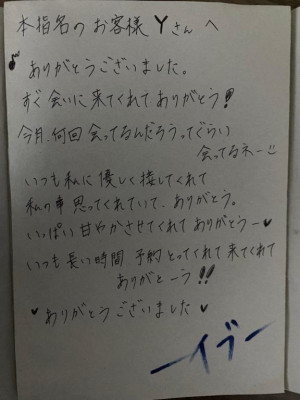 本指名のお客様Yさんへ
♪ ありがとうございました。
すぐ会いに来てくれてありがとう!
今月、何回会ってるんだろうってぐらい
会ってるネー☺
いつも私に優しく接してくれて
私の事思ってくれていて、ありがとう。
いっぱい甘やかさせてくれてありがとうー♥
いつも長い時間予約とってくれて来てくれて
ありがとーう!!
♥ありがとうございました♥
ーイブー